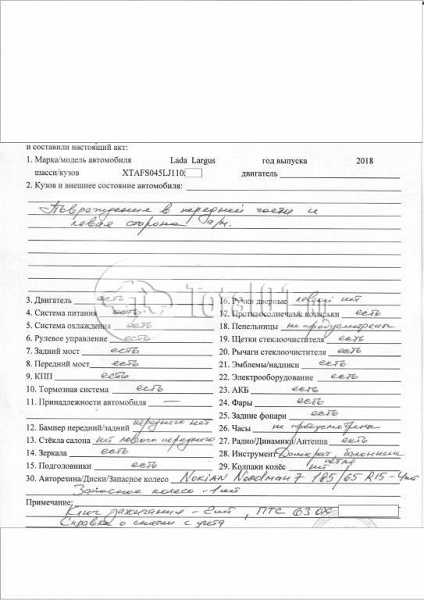 и составили настоящий акт:
1. Марка/модель автомобиля Lada Largus год выпуска 2018
шасси/кузов XTAFS045LJ110 двигатель
2. Кузов и внешнее состояние автомобиля:
Повреждения в передней части и
левая сторона а/м.
3. Двигатель есть
4. Система питания есть
5. Система охлаждения есть
6. Рулевое управление есть
7. Задний мост есть
8. Передний мост есть
9. КПП есть
10. Тормозная система есть
11. Принадлежности автомобиля —
12. Бампер передний/задний переднего нет
13. Стёкла салона нет левого переднего
14. Зеркала есть
15. Подголовники есть
16. Ручки дверные левой нет
17. Противосолнечные козырьки есть
18. Пепельницы не предусмотрены
19. Щетки стеклоочистителя есть
20. Рычаги стеклоочистителя есть
21. Эмблемы/надписи есть
22. Электрооборудование есть
23. АКБ есть
24. Фары есть
25. Задние фонари есть
26. Часы не предусмотрены
27. Радио/Динамики/Антенна есть
28. Инструмент Домкрат, балонник
29. Колпаки колёс нет
30. Авторезина/Диски/Запасное колесо Nokian Nordman 7 185/65 R15 - 4шт
Запасное колесо - 1шт
Примечание:
Ключ зажигания - 2шт, ПТС 63 ОХ
Справка о снятии с учёта